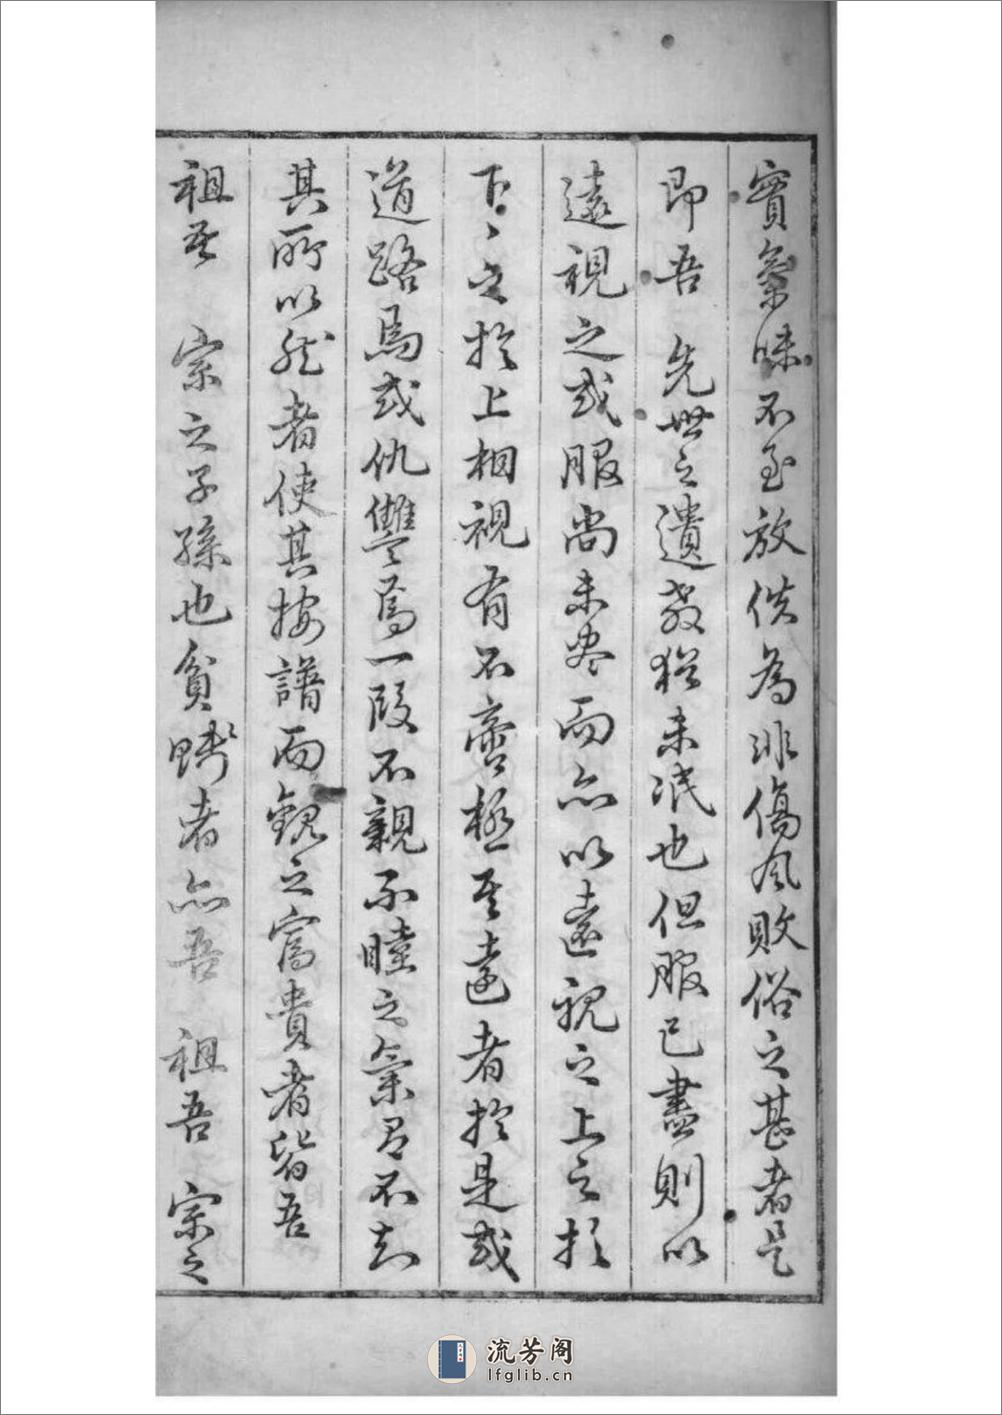 實氣味不至放佚為非傷風敗俗之甚者是
即吾 先世之遺教猶未泯也但服已盡則以
遠視之或服尚未盡而亦以遠視之上之於
下下之於上相視有不齊極至遠者於是或
道路焉或仇讐焉一段不親不睦之氣有不知
其所以然者使其按譜而觀之富貴者皆吾
祖吾 宗之子孫也貧賤者亦吾 祖吾 宗之
流芳阁
lfglib.cn